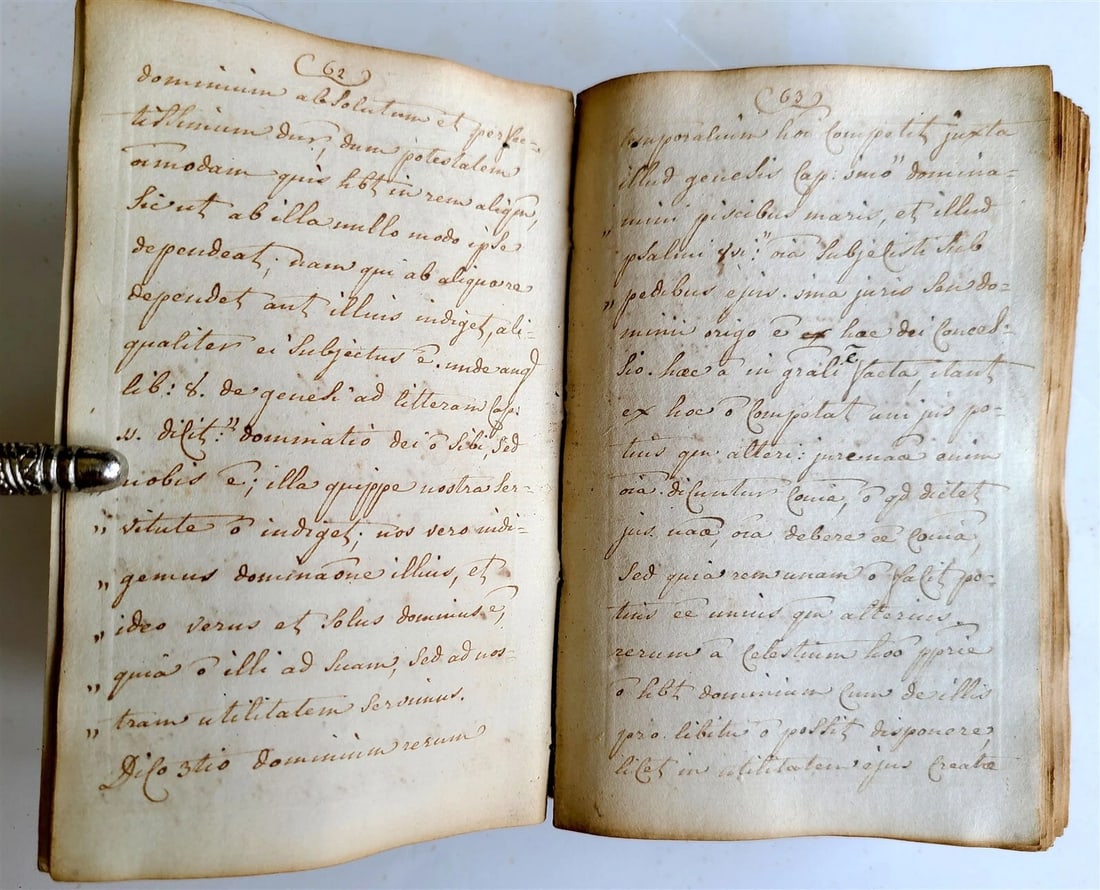 (62)
dominium absolutum et perfec-
tissimum dur, dum potestatem
ōmodam quis hbt in rem aliqm,
Sicut ab illa nullo modo ipse
dependeat; nam qui ab aliqua re
dependet aut illius indiget, ali-
qualiter ei Subjectus ē. unde aug
lib: 8. de genesi ad litteram Cap:
11. dicit:" dominatio dei ō Sibi Sed
nobis ē; illa quippe nostra Ser-
" vitute ō indiget; nos vero indi-
" gemus dominaōne illius, et
" ideo verus et Solus dominus ē,
" quia ō illi ad Suam, Sed ad nos-
" tram utilitatem Servimus.
Dico 3tio dominium rerum
(63)
temporalium hoi Competit juxta
illud genesis Cap: imo" domina-
" mini piscibus maris, et illud
psalmi 8vi:" oīa Subjecisti Sub
" pedibus ejus. ima juris Seu do-
minii origo ē hac dei Conces-
Sio. haec ā in grāli ē facta, itaut
ex hoc ō Competat uni jus po-
tius qm alteri: jure naāe enim
oīa dicuntur Coīa, ō qd dictet
jus naāe, oīa debere ēe Coīa,
Sed quia rem unam ō facit po-
tius ēe unius qm alterius.
rerum ā Celestium hoō pprie
ō hbt dominium Cum de illis
pro libitu ō possit disponere,
licet in utilitatem ejus Creatae